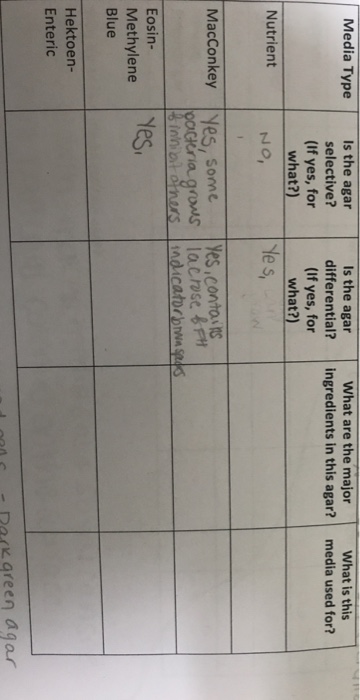 Media Type
Is the agar
selective?
(If yes, for
what?)
Is the agar
differential?
(If yes, for
what?)
What are the major
ingredients in this agar?
What is this
media used for?
Nutrient
NO,
Yes,
MacConkey
Yes, some
bacteria grows
& inhibit others
Yes, contains
lactose & PH
indicator
Eosin-
Methylene
Blue
Yes,
Hektoen-
Enteric
- Dark green agar